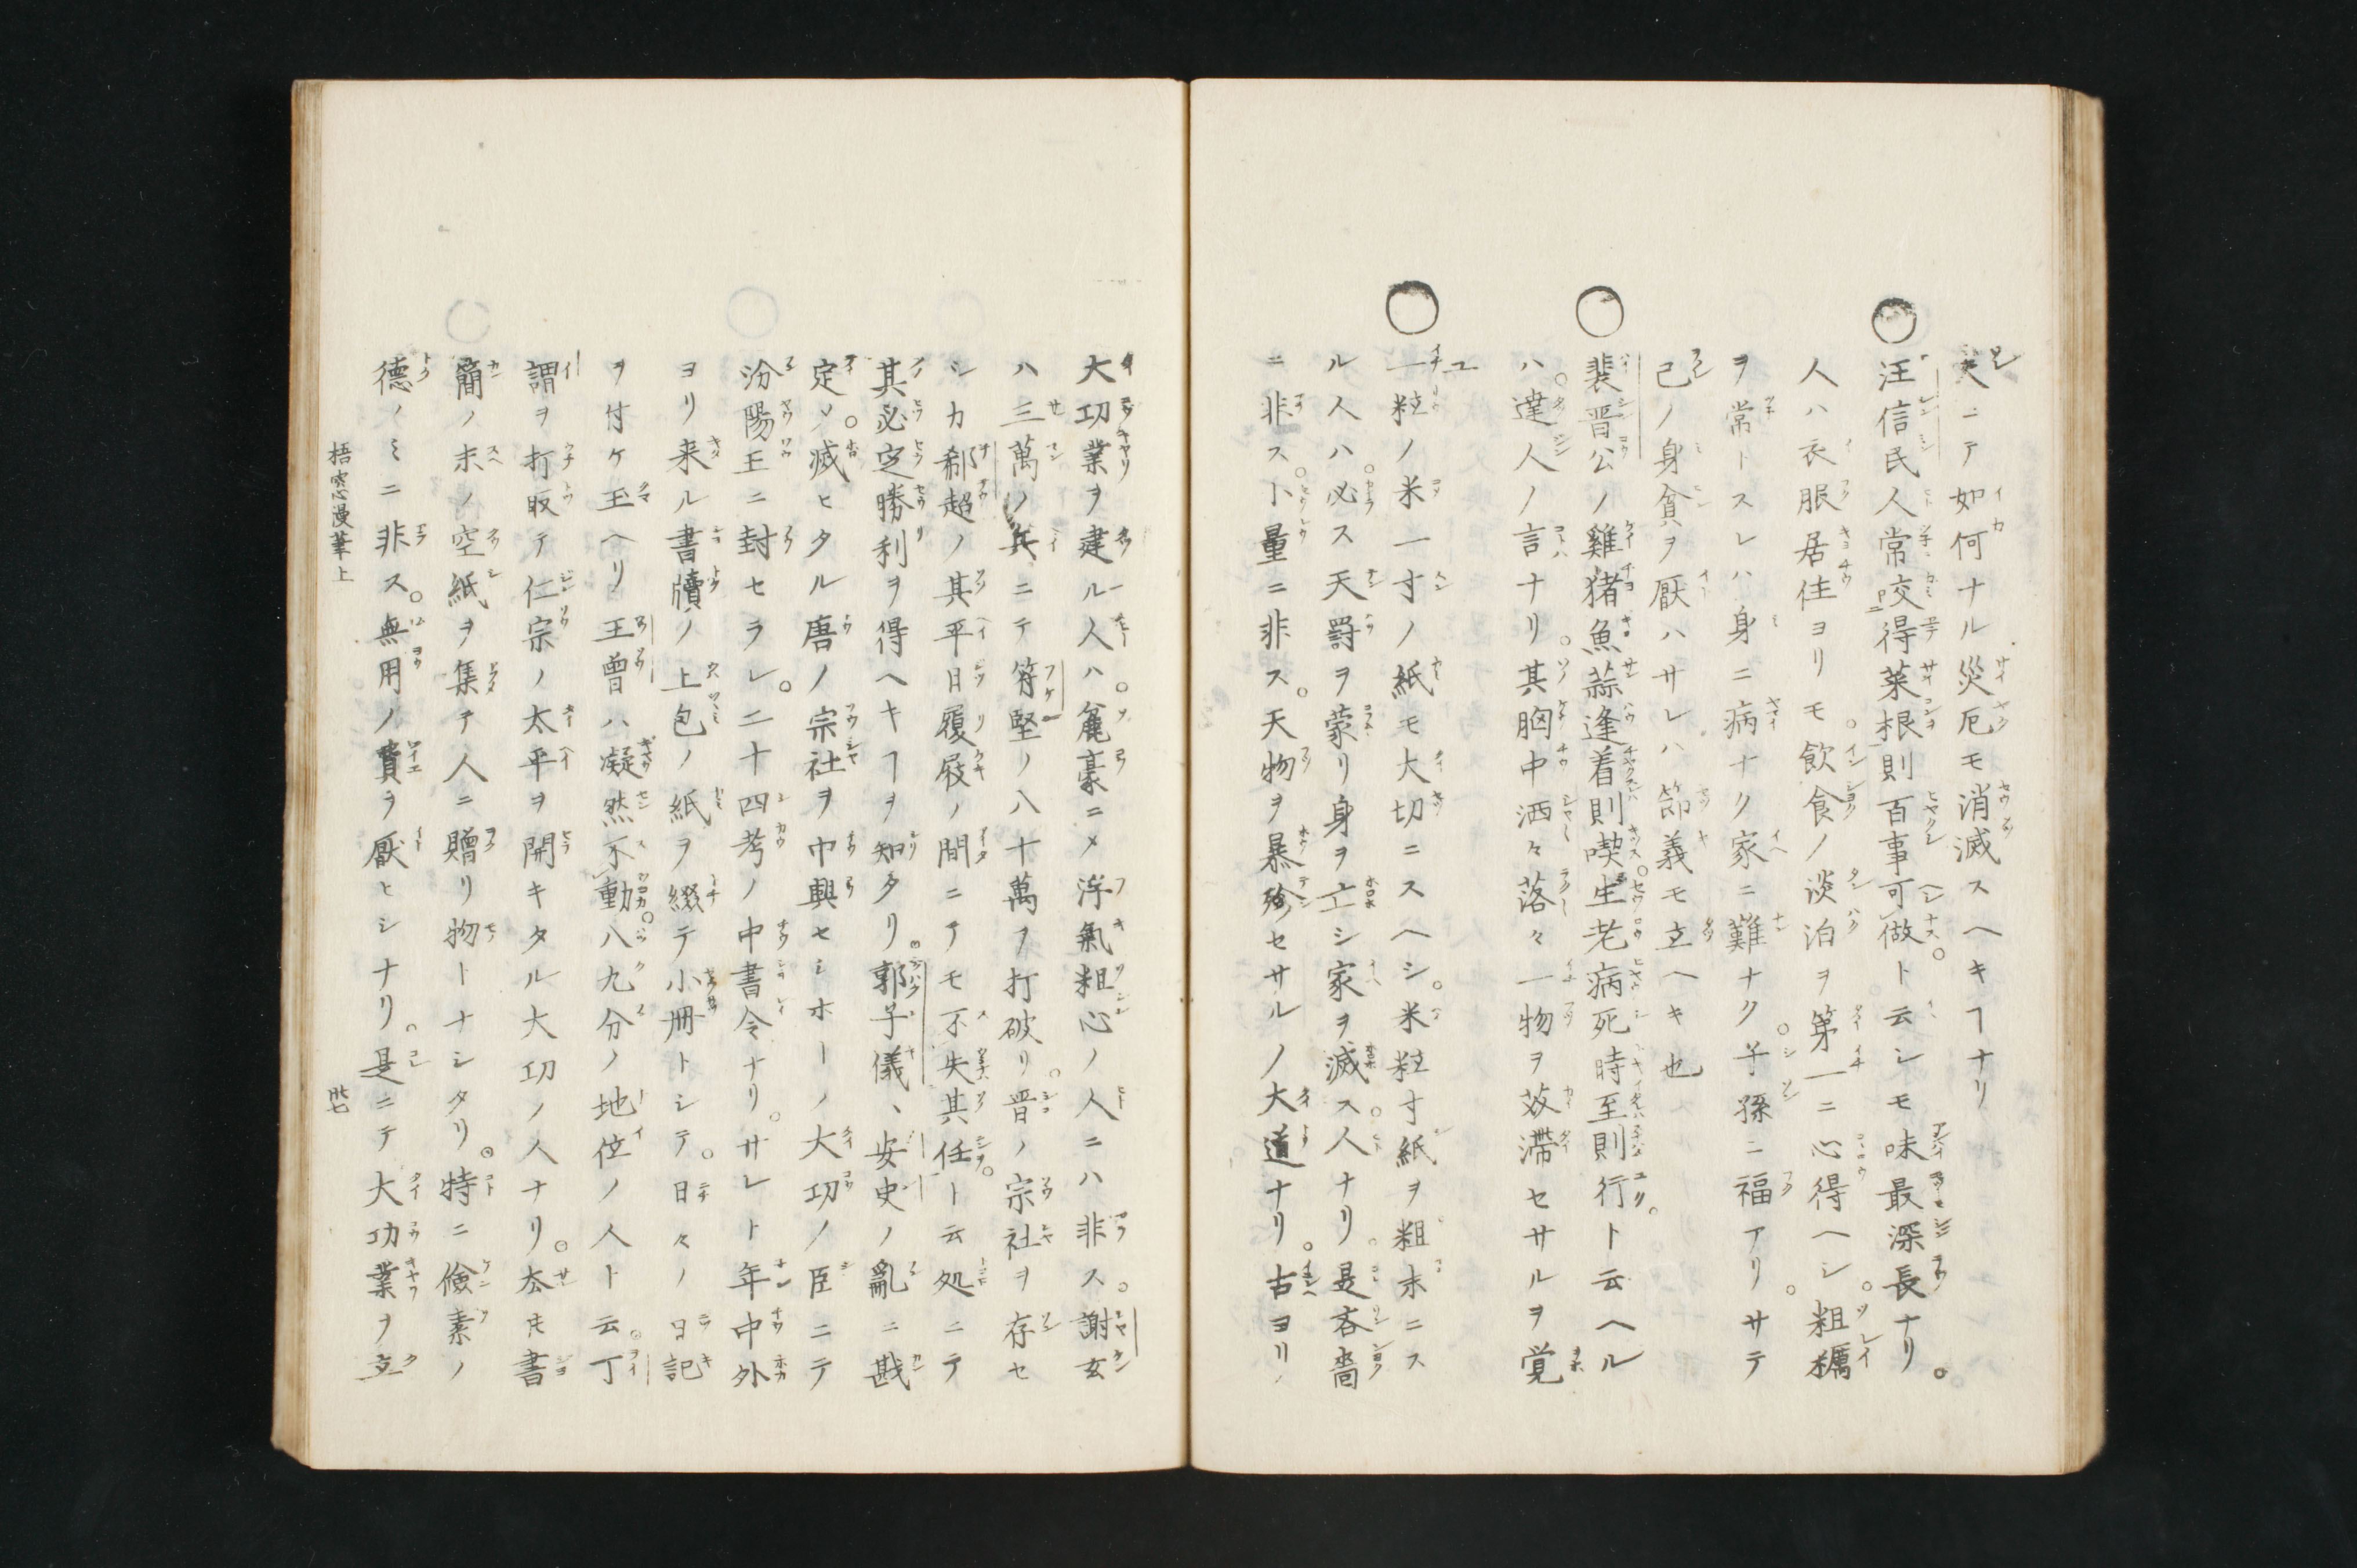 夫ニテ如何ナル災厄モ消滅スヘキヿナリ
汪信民人常咬得菜根則百事可做ト云シモ味最深長ナリ。
人ハ衣服居住ヨリモ。飲食ノ淡泊ヲ第一ニ心得ヘシ。粗糲
ヲ常トスレハ身ニ病ナク家ニ難ナク。子孫ニ福アリ。サテ
己ノ身貧ヲ厭ハサレハ節義モ立ヘキ也
裴晋公ノ雞猪魚蒜逢着則喫。生老病死時至則行。ト云ヘル
ハ。達人ノ言ナリ。其胸中洒々落々一物ヲ芥滞セサルヲ覚
ユ
一粒ノ米一寸ノ紙モ大切ニスヘシ。米粒寸紙ヲ粗末ニス
ル人ハ。必ス天罸ヲ蒙リ身ヲ亡シ家ヲ滅ス。人ナリ。是吝嗇
ニ非ス。小量ニ非ス。天物ヲ暴殄セサルノ大道ナリ。古ヨリ
大功業ヲ建ル人ハ。麁豪ニメ浮氣粗心ノ人ニハ非ス。謝玄
ハ三萬ノ兵ニテ符堅ノ八十萬ヲ打破リ。晋ノ宗社ヲ存セ
シカ郗超ノ其平日履屐ノ間ニテモ不失其任。ト云処ニテ
其必定勝利ヲ得ヘキヿヲ知タリ。郭子儀、安史ノ亂ニ戡
定ソ。滅ヒタル唐ノ宗社ヲ中興セシホーノ大功ノ臣ニテ
汾陽王ニ封セラレ。二十四考ノ中書令ナリ。サレト年中外
ヨリ来ル書牘ノ上包ノ紙ヲ綴テ小冊トシテ。日々ノ日記
ヲ付ケ玉ヘリ王曾ハ凝然不動。八九分ノ地位ノ人ト云。丁
謂ヲ打取テ仁宗ノ太平ヲ開キタル大功ノ人ナリ。夲ヨ書
簡ノ末ノ空紙ヲ集テ人ニ贈リ物トナシタリ。特ニ儉素ノ
徳ノミニ非ス。無用ノ費ヲ厭ヒシナリ。是ニテ大功業ヲ立
梧窓漫筆上
丗七